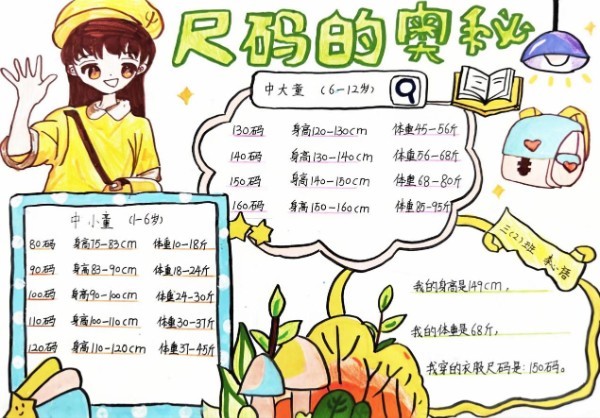 尺码的奥秘
中大童 (6-12岁)
130码 身高120-130cm 体重45-56斤
140码 身高130-140cm 体重56-68斤
150码 身高140-150cm 体重68-80斤
160码 身高150-160cm 体重85-95斤
中小童 (1-6岁)
80码 身高75-83cm 体重10-18斤
90码 身高83-90cm 体重18-24斤
100码 身高90-100cm 体重24-30斤
110码 身高100-110cm 体重30-37斤
120码 身高110-120cm 体重37-45斤
三(2)班
我的身高是149cm，
我的体重是68斤，
我穿的衣服尺码是:150码。